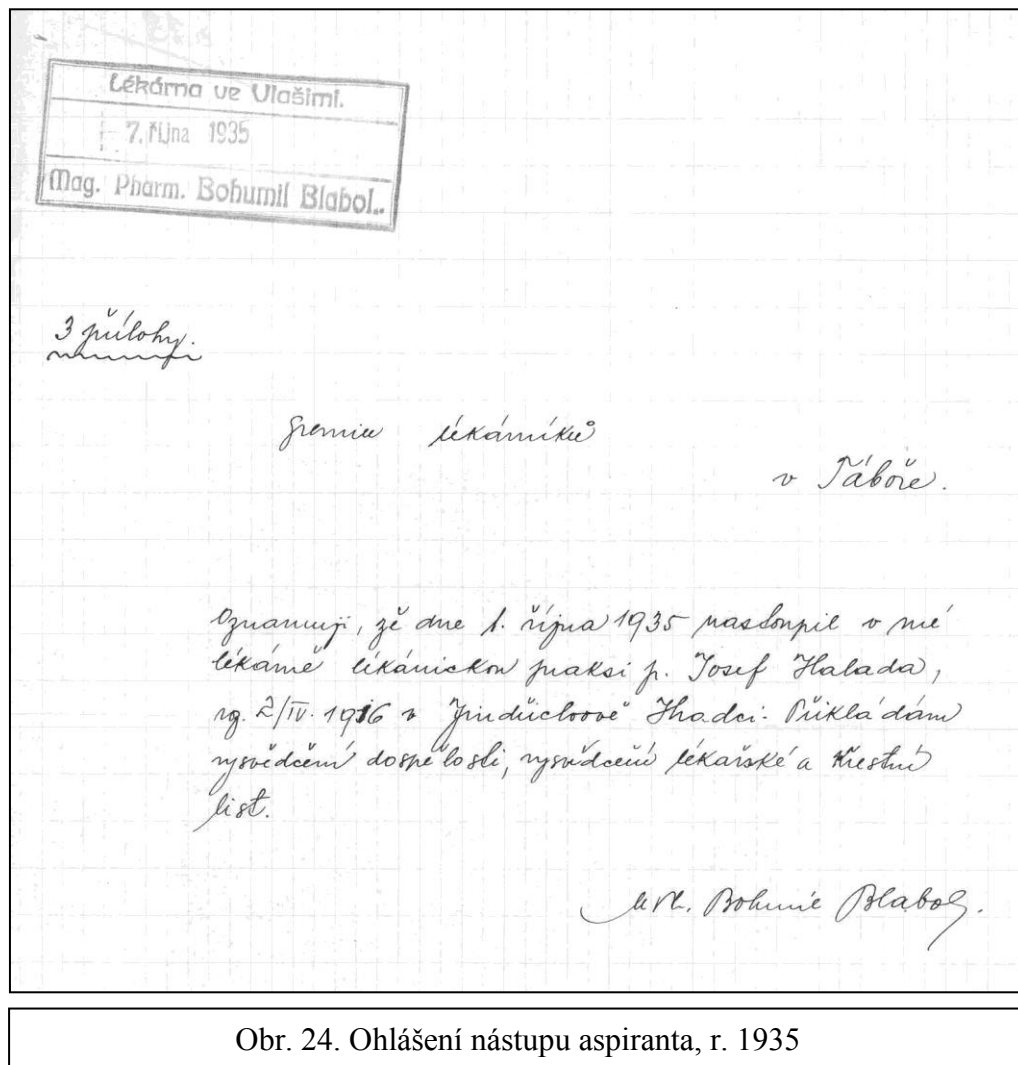 Lékárna ve Vlašimi.
7. října 1935
Mag. Pharm. Bohumil Blabol..
3 přílohy.
Gremiu lékárníků
v Táboře.
Oznamuji, že dne 1. října 1935 nastoupil v mé
lékárně lékárnickou praksi p. Josef Halada,
2/IV. 1916 v Jindřichově Hradci. Přikládám
vysvědčení dospělosti, vysvědčení lékařské a křestní
list.
Bohumil Blabol.
Obr. 24. Ohlášení nástupu aspiranta, r. 1935